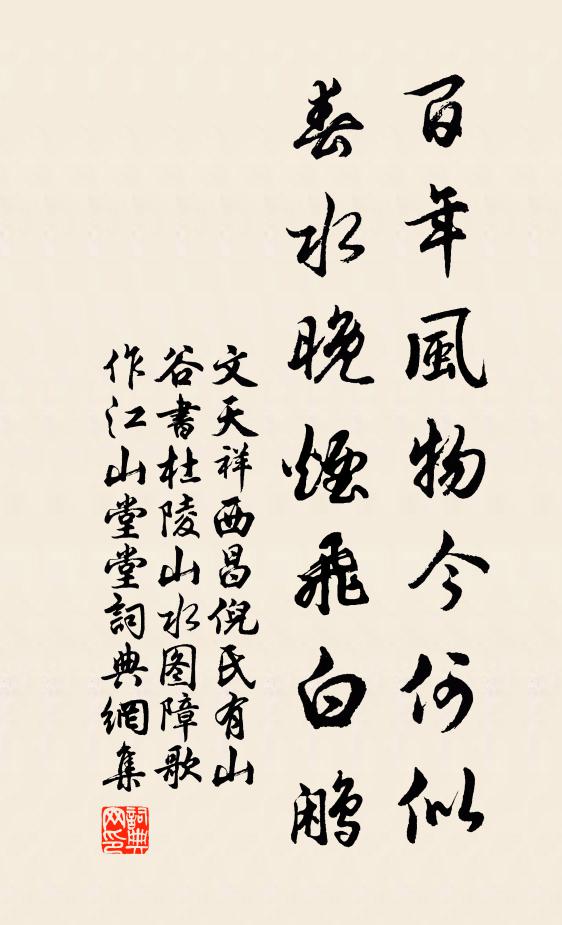 百年風物今何似
春水晚煙飛白鷴
文天祥西昌倪氏有山
谷書杜陵山水图障歌
作江山堂堂詞典網集
詞典网印